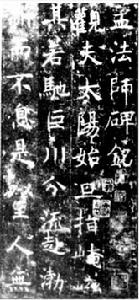 孟法師碑銘
觀夫太陽始旦指崦嵫
其若馳巨川分流赴渤
而不息是以至人